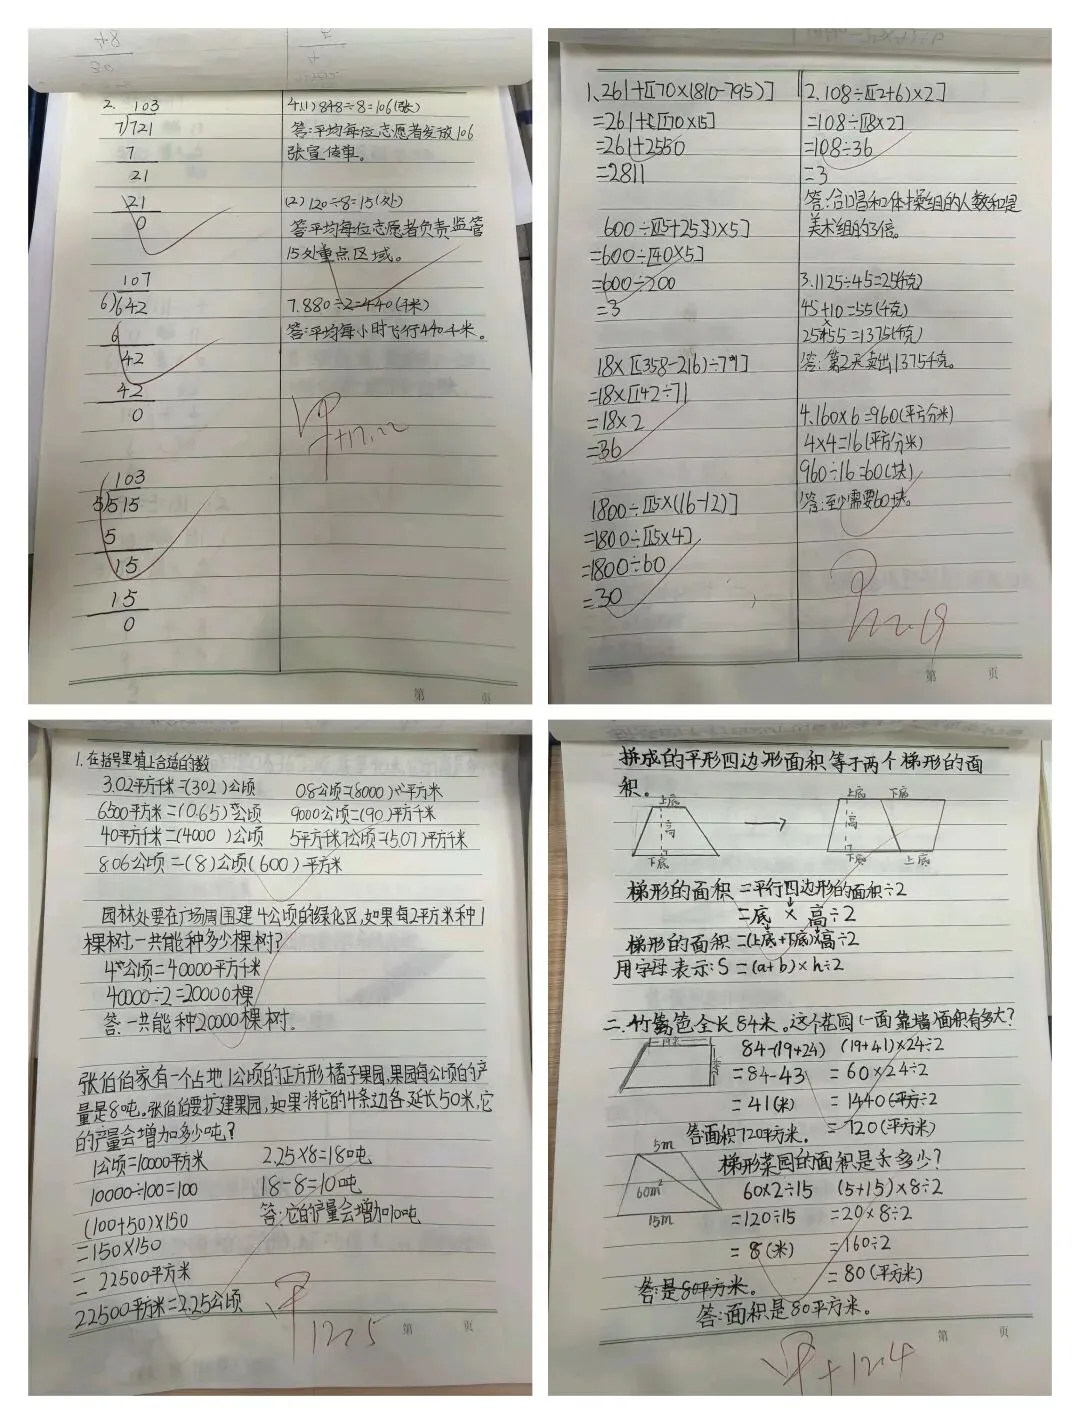 2. 103
7)721
7
21
21
0
107
6)642
6
42
42
0
103
5)515
5
15
15
0
4.(1)848÷8=106(张)
答:平均每位志愿者发放106
张宣传单。
(2)120÷8=15(处)
答平均每位志愿者负责监管
15处重点区域。
7.880÷2=440(千米)
答:平均每小时飞行440千米。
1、261+[170×(810-795)]
=261+[170×15]
=261+2550
=2811
600÷[(15+25)×5]
=600÷[40×5]
=600÷200
=3
18×[(358-216)÷71]
=18×[142÷71
=18×2
=36
1800÷[15×(16-12)]
=1800÷[15×4]
=1800÷60
=30
2.108÷[(12+6)×2]
=108÷[18×2]
=108÷36
=3
答:合唱和体操组的人数和是
美术组的3倍。
3.1125÷45=25(千克)
45+10=55(千克)
25×55=1375(千克)
答:第2天卖出1375千克。
4.160×6=960(平方分米)
4×4=16(平方分米)
960÷16=60(块)
答:至少需要60块。
12.19
第 页
第 页
1.在括号里填上合适的数
3.02平方千米=(302)公顷 0.8公顷=(8000)平方米
6500平方米=(0.65)公顷 9000公顷=(90)平方千米
40平方千米=(4000)公顷 5平方千米7公顷=(5.07)平方千米
8.06公顷=(8)公顷(600)平方米
园林处要在广场周围建4公顷的绿化区,如果每2平方米种1
棵树.一共能种多少棵树?
4公顷=40000平方千米
40000÷2=20000棵
答:一共能种20000棵树.
张伯伯家有一个占地1公顷的正方形橘子果园,果园每公顷的产
量是8吨。张伯伯要扩建果园,如果将它的4条边各延长50米,它
的产量会增加多少吨?
1公顷=10000平方米
10000÷100=100
(100+50)×150
=150×150
=22500平方米
22500平方米=2.25公顷
2.25×8=18吨
18-8=10吨
答:它的产量会增加10吨
12.5
第 页
拼成的平形四边形面积等于两个梯形的面
积。
上底
高
下底
上底 下底
高
下底 上底
梯形的面积=平行四边形的面积÷2
=底×高÷2
梯形的面积=(上底+下底)×高÷2
用字母表示:S=(a+b)×h÷2
二.竹篱笆全长84米。这个花园(一面靠墙)面积有多大?
19米
84-(19+24) (19+41)×24÷2
=84-43 =60×24÷2
=41(米) =1440÷2
答面积720平方米. =720(平方米)
梯形菜园的面积是多少?
5m
60m²
15m
60×2÷15 (5+15)×8÷2
=120÷15 =20×8÷2
=8(米) =160÷2
答:是80平方米。 =80(平方米)
答:面积是80平方米。
+12.4
第 页